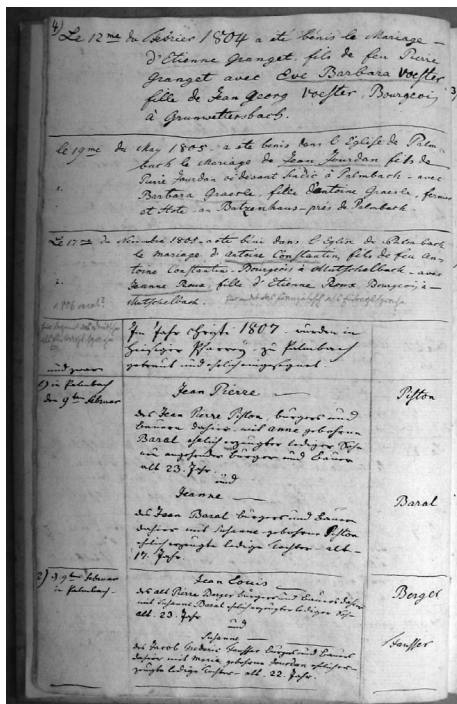 4)
Le 12me du Février 1804 a été bénis le Mariage
d'Etienne Granget, fils de feu Pierre
Granget avec Eve Barbara Voester
fille de Jean Georg Voester, Bourgeois
à Grunwettersbach.
le 19me du May 1805 a été bénis dans l'Eglise de Palm-
bach le Mariage de Jean Jourdan fils de
Pierre Jourdan ci devant Sindic à Palmbach avec
1.
Barbara Graesle, fille d'Antoine Graesle, fermier
et Hote au Batzenhaus près de Palmbach.
Le 17me du Novembre 1805 a été béni dans l'Eglise de Palmbach
le mariage d'Antoine Constantin, fils de feu An-
toine Constantin Bourgeois à Mutschelbach avec
2.
Jeanne Roux, fille d'Etienne Roux Bourgeois à
Mutschelbach.
1806
Im Jahr Christi 1807 wurden in
hiesiger Pfarrey zu Palmbach
getraut und ehelich eingesegnet
und zwar
1) in Palmbach
den 9ten Februar
Jean Pierre
Piston
des Jean Pierre Piston, bürgers und
bauern dahier mit Anne gebohrne
Baral ehelich erzeugter lediger Sohn
angehender bürger und bauer
alt 23. Jahr.
und
Jeanne
Baral
des Jean Baral bürgers und bauern
dahier mit Susanne gebohrne Piston
ehelich erzeugte ledige Tochter alt
17. Jahr.
2) d. 9ten Februar
in Palmbach
Jean Louis
Berger
des alt Pierre Berger bürgers und bauers dahier
mit Susanne Baral ehelich erzeugter lediger Sohn
alt 23. Jahr
und
Susanne
des Jacob Frederic bürgers und bauers
dahier mit Maria gebohrne Jourdan ehelich er-
zeugte ledige Tochter alt 22. Jahr.